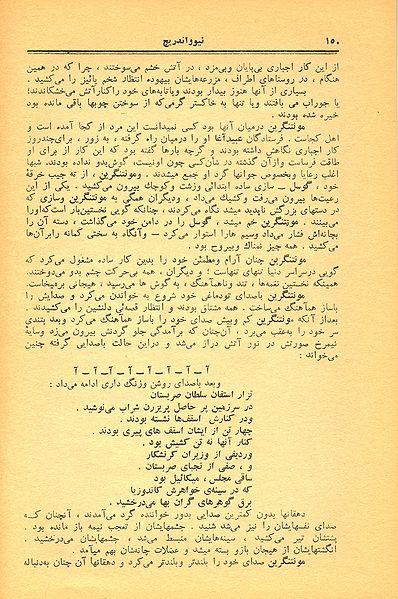 ۱۵۰
ئیوواندریچ
از این کار اجباری بی‌پایان وبی‌مزد ، در آتش خشم می‌سوختند ، چرا که در همین
هنگام ، در روستاهای اطراف ، مزرعه‌هایشان بیهوده انتظار شخم پائیز را می‌کشید .
بسیاری از آنها هنوز بیدار بودند وپاتابه‌های خود راکنارآتش می‌خشکاندند؛
یا جوراب می بافتند ویا تنها به خاکستر گرمی‌که از سوختن چوبها باقی مانده بود
خیره شده بودند .
مونتنگرین درمیان آنها بود کسی نمیدانست این مرد از کجا آمده است و
اهل کجاست . فرستادگان عبیدآغا او را درمیان راه گرفته ، به زور ، برای‌چندروز
کار اجباری نگاهش داشته بودند. و گرچه بارها گفته بود که این کار از برای او
طاقت فرساست وازآن گذشته در شأن‌کسی چون اونیست، گوش‌بدو نداده بودند. شبها
اغلب رعایا وبخصوص جوانها گرد او جمع میشدند . ومونتنگرین ، از ته جیب خرقهٔ
خود ، گوسل ـ سازی ساده ابتدائی وزشت وکوچك بیرون می‌کشید . یکی از این
رعیت‌ها بیرون می‌رفت وکشیك می‌داد ، ودیگران همگی به مونتنگرین وسازی که
در دستهای بزرگش ناپدید میشد نگاه می‌کردند، چنانکه گویی نخستین‌بار است‌که‌اورا
می‌بینند . مونتنگرین خم میشد ، گوسل را در دامن خود می‌گذاشت ، دسته آن را
بچانه‌اش فشار می‌داد وسیم هارا استوار می‌کرد ـ وآنگاه به سختی کمانه رابرآن‌ها
می‌کشید . همه چیز نمناك وبیروح بود .
مونتنگرین چنان آرام ومطمئن خود را بدین کار ساده مشغول می‌کرد که
گویی درسراسر دنیا تنهای تنهاست ؛ و دیگران ، همه بی‌حرکت چشم بدو می‌دوختند.
همینکه نخستین نغمه‌ها ، تند وناهمآهنگ ، به گوش ها می‌رسید ، هیجانی برمیخاست.
مونتنگرین باصدای تودماغی خود شروع به خواندن می‌کرد و صدایش را
باساز همآهنگ می‌ساخت . همه مشتاق بودند و انتظار قصه‌ئی دلنشین را می‌کشیدند .
بعداز آنکه مونتنگرین کم وبیش صدای خود را باساز همآهنگ می‌کرد وبعد بتندی
سر خود را به‌عقب می‌برد ، آن‌چنان که برآمدگی جلو گردنش بیرون می‌زد وسایهٔ
نیمرخ صورتش در نور آتش دراز می‌شد و دراین حالت باصدایی گرفته چنین
می‌خواند :
آ ـ آ ـ آ ـ آ ـ آ ـ آ ـ آ ـ آ
وبعد باصدای روشن وزنگ داری ادامه می‌داد :
تزار استفان سلطان صربستان
در سرزمین پر حاصل پریزرن شراب می‌نوشید .
ودر کنارش اسقف‌ها نشسته بودند .
چهار تن از ایشان اسقف های پیری بودند .
کنار آنها نه تن کشیش بود .
وردیفی از وزیران کرنشکار
و ، صفی از نجبای صربستان .
ساقی مجلس ، میکائیل بود
که در سینه‌ی خواهرش کاندوزیا
برق گوهرهای گران بها می‌درخشید .
دهقانها بدون کمترین صدایی بدور خواننده گرد می‌آمدند ، آنچنان کــه
صدای نفسهایشان را نیز می‌شد شنید . چشمهایشان از تعجب نیمه باز مانده بود .
پشتشان تیر می‌کشید ، سینه‌هایشان منبسط می‌شد ، چشمهایشان می‌درخشید ،
انگشتهایشان از هیجان بازو بسته میشد و عضلات چانه‌شان بهم می‌آمد .
مونتنگرین صدای خود را بلندتر وبلندتر می‌کرد و دهقانها آن چنان به‌دنباله